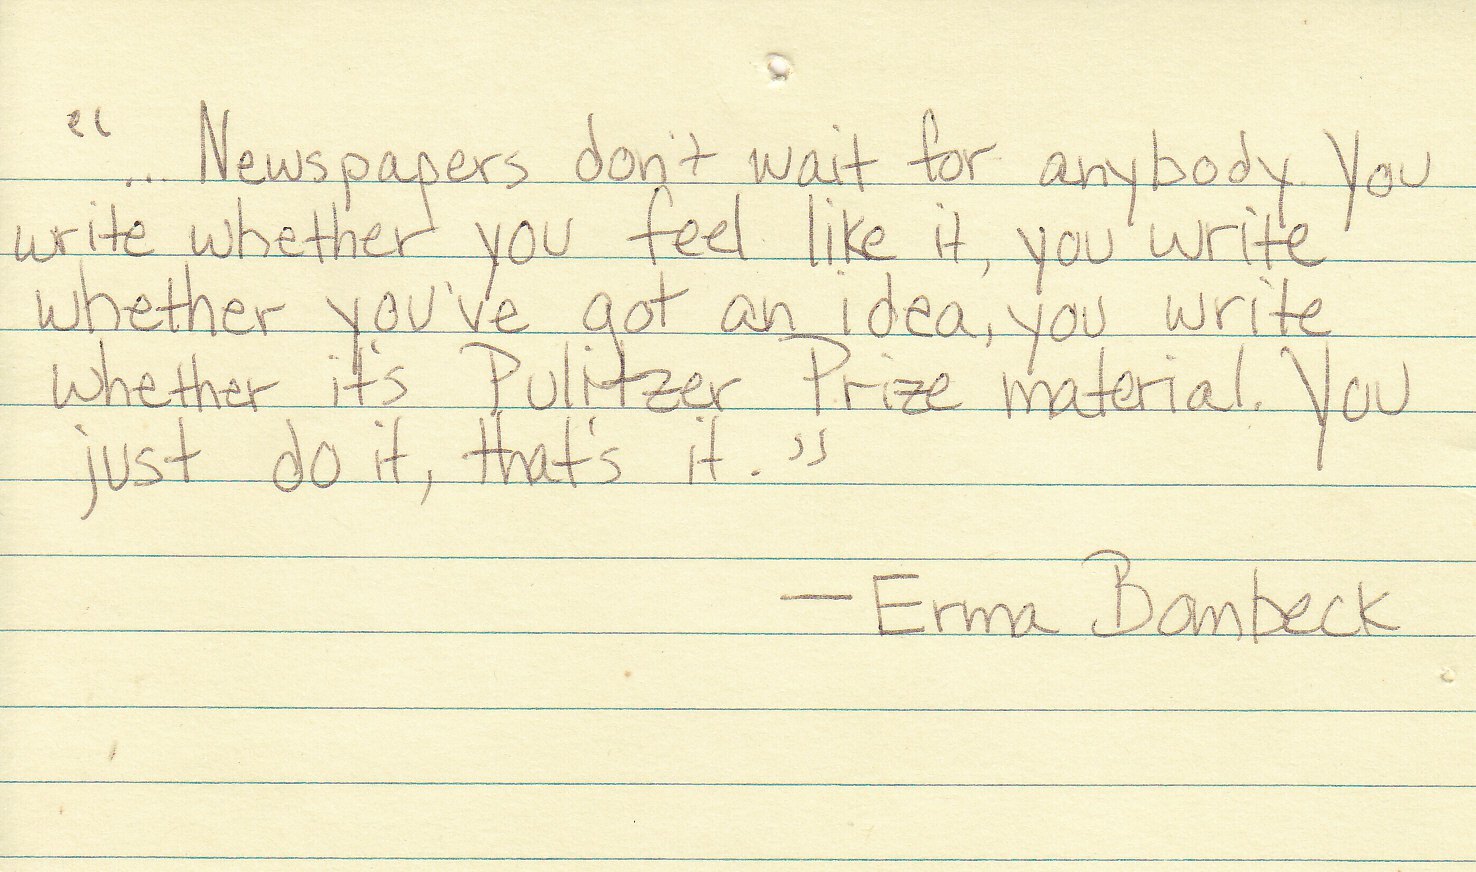 "... Newspapers don't wait for anybody. You
write whether you feel like it, you write
whether you've got an idea, you write
whether it's Pulitzer Prize material. You
just do it, that's it."
— Erma Bombeck